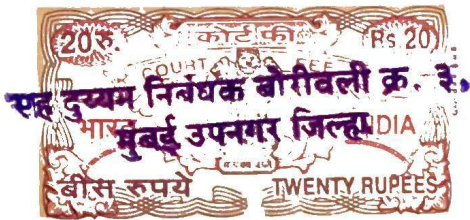 20रु. कोर्ट फी Rs 20
COURT FEE
सह दुय्यम निबंधक बोरीवली क्र. ३,
मुंबई उपनगर जिल्हा
भारत INDIA
बीस रुपये TWENTY RUPEES